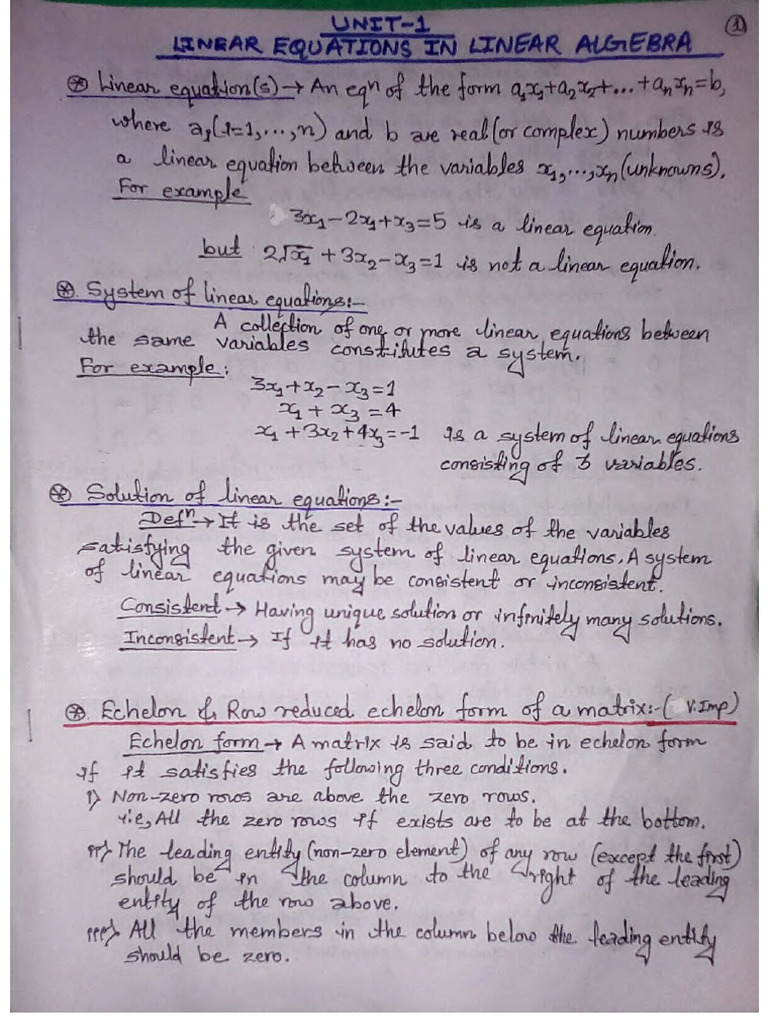 ①
UNIT-1
LINEAR EQUATIONS IN LINEAR ALGEBRA
⊛ Linear equation(s) → An eqn of the form a₁x₁+a₂x₂+...+aₙxₙ=b,
where aᵢ(i=1,...,n) and b are real (or complex) numbers is
a linear equation between the variables x₁,...,xₙ (unknowns).
For example
3x₁-2x₁+x₃=5 is a linear equation.
but 2√x₁ + 3x₂-x₃=1 is not a linear equation.
⊛. System of linear equations:-
A collection of one or more linear equations between
the same variables constitutes a system.
For example:
3x₁+x₂-x₃=1
x₁+x₃=4
x₁+3x₂+4x₃=-1 is a system of linear equations
consisting of 3 variables.
⊛ Solution of linear equations:-
Defn → It is the set of the values of the variables
satisfying the given system of linear equations. A system
of linear equations may be consistent or inconsistent.
Consistent → Having unique solution or infinitely many solutions.
Inconsistent → If it has no solution.
⊛. Echelon & Row reduced echelon form of a matrix:- ( V.Imp)
Echelon form → A matrix is said to be in echelon form
if it satisfies the following three conditions.
i) Non-zero rows are above the zero rows.
i.e, All the zero rows if exists are to be at the bottom.
ii) The leading entity (non-zero element) of any row (except the first)
should be in the column to the right of the leading
entity of the row above.
iii) All the members in the column below the leading entity
should be zero.